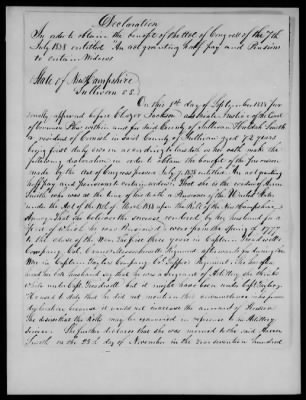 Declaration
In order to obtain the benefit of the Act of Congress of the 7th
July 1838 entitled An act granting half pay and Pensions
to certain Widows
State of New Hampshire
Sullivan SS.
On this 1st day of September 1838 per-
sonally appeared before Eleazer Jackson associate Justice of the Court
of Common Pleas within and for said County of Sullivan Huldah Smith
a resident of Cornish in said County of Sullivan aged 72 years
being first duly sworn according to law doth on her oath make the
following declaration in order to obtain the benefit of the provision
made by the act of Congress passed July 7, 1838 entitled An act granting
half pay and Pensions to certain widows. That she is the widow of
Smith who was at the time of his death a Pensioner of the United States
under the Act of the 18th of March 1818 upon the Roll of the New Hampshire
Agency. That she believes the services rendered by her husband for a
Part of which he was Pensioned were from the spring of 1777
to the close of the War
Company Col. Massachusetts Regiment afterwards during the
War in Captain Company Col. Regiment. She has often
heard her late husband say that he was a Sergeant of Artillery she thinks
while under Capt. but it might have been under Capt.
He used to add that he did not mention this circumstance when
because it would not increase the amount of Pension.
She desires that the Rolls may be examined in reference to his Artillery
Service. She further declares that she was married to the said
Smith on the 23d day of November in the year seventeen hundred